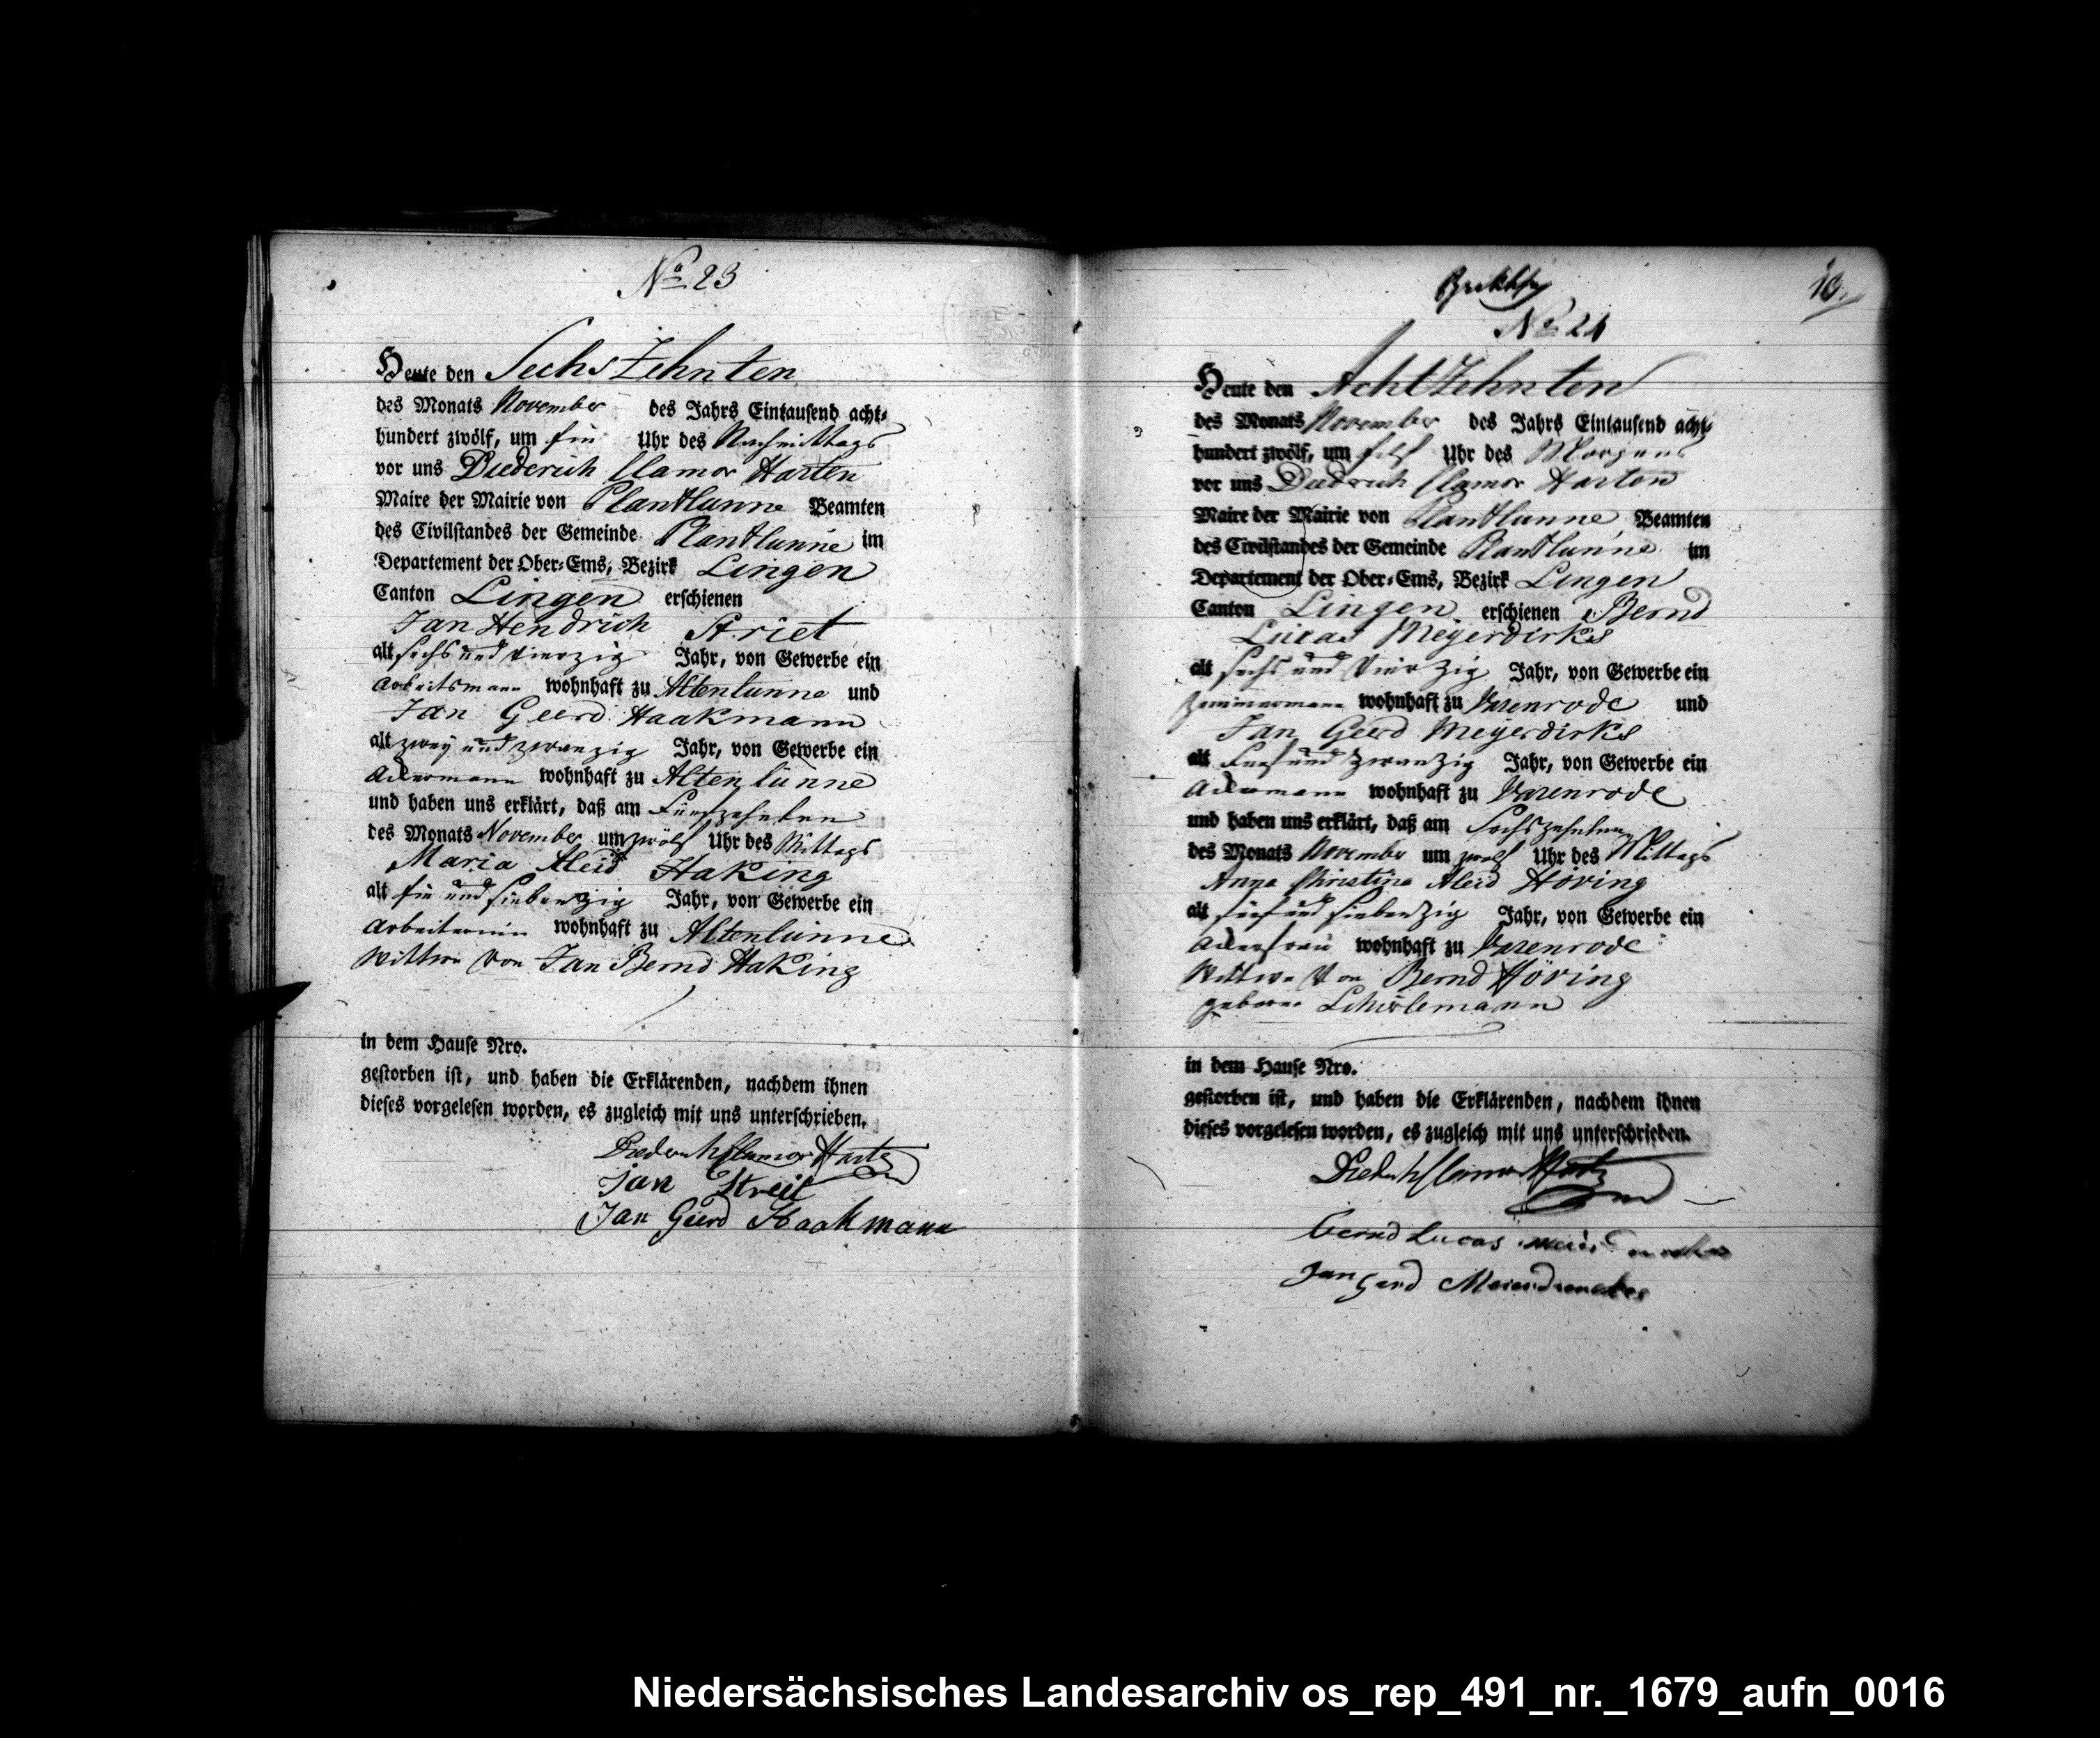 No 23
Heute den Sechszehnten
des Monats November des Jahrs Eintausend acht-
hundert zwölf, um ein Uhr des Nachmittags
vor uns Diederich Clamor Harten
Maire der Mairie von Plantlünne Beamten
des Civilstandes der Gemeinde Plantlünne im
Departement der Ober-Ems, Bezirk Lingen
Canton Lingen erschienen
Jan Hendrich Striet
alt sechs und vierzig Jahr, von Gewerbe ein
Arbeitsmann wohnhaft zu Altenlünne und
Jan Geerd Haakmann
alt zwey und zwanzig Jahr, von Gewerbe ein
Ackermann wohnhaft zu Altenlünne
und haben uns erklärt, daß am Fünfzehnten
des Monats November um zwölf Uhr des Mittags
Maria Aleid Haking
alt ein und siebenzig Jahr, von Gewerbe ein
Arbeiterin wohnhaft zu Altenlünne
Wittwe von Jan Bernd Haking
in dem Hause Nro.
gestorben ist, und haben die Erklärenden, nachdem ihnen
dieses vorgelesen worden, es zugleich mit uns unterschrieben.
Diederich Clamor Harten
Jan Streit
Jan Geerd Haakmann
10.
No 24
Heute den Achtzehnten
des Monats November des Jahrs Eintausend acht-
hundert zwölf, um Uhr des Morgens
vor uns Diedrich Clamor Harten
Maire der Mairie von Plantlünne Beamten
des Civilstandes der Gemeinde Plantlünne im
Departement der Ober-Ems, Bezirk Lingen
Canton Lingen erschienen Bernd
Lucas Meyerdirks
alt sechs und vierzig Jahr, von Gewerbe ein
Zimmermann wohnhaft zu Varenrode und
Jan Geerd Meyerdirks
alt Fünf und zwanzig Jahr, von Gewerbe ein
Ackermann wohnhaft zu Varenrode
und haben uns erklärt, daß am Sechszehnten
des Monats November um zwölf Uhr des Mittags
Anna Christina Aleid Höving
alt fünf und siebenzig Jahr, von Gewerbe ein
Ackersfrau wohnhaft zu Varenrode
Wittwe von Bernd Höving
geborne
in dem Hause Nro.
gestorben ist, und haben die Erklärenden, nachdem ihnen
dieses vorgelesen worden, es zugleich mit uns unterschrieben.
Diederich Clamor Harten
Bernd Lucas
Jan Gerd
Niedersächsisches Landesarchiv os_rep_491_nr._1679_aufn_0016